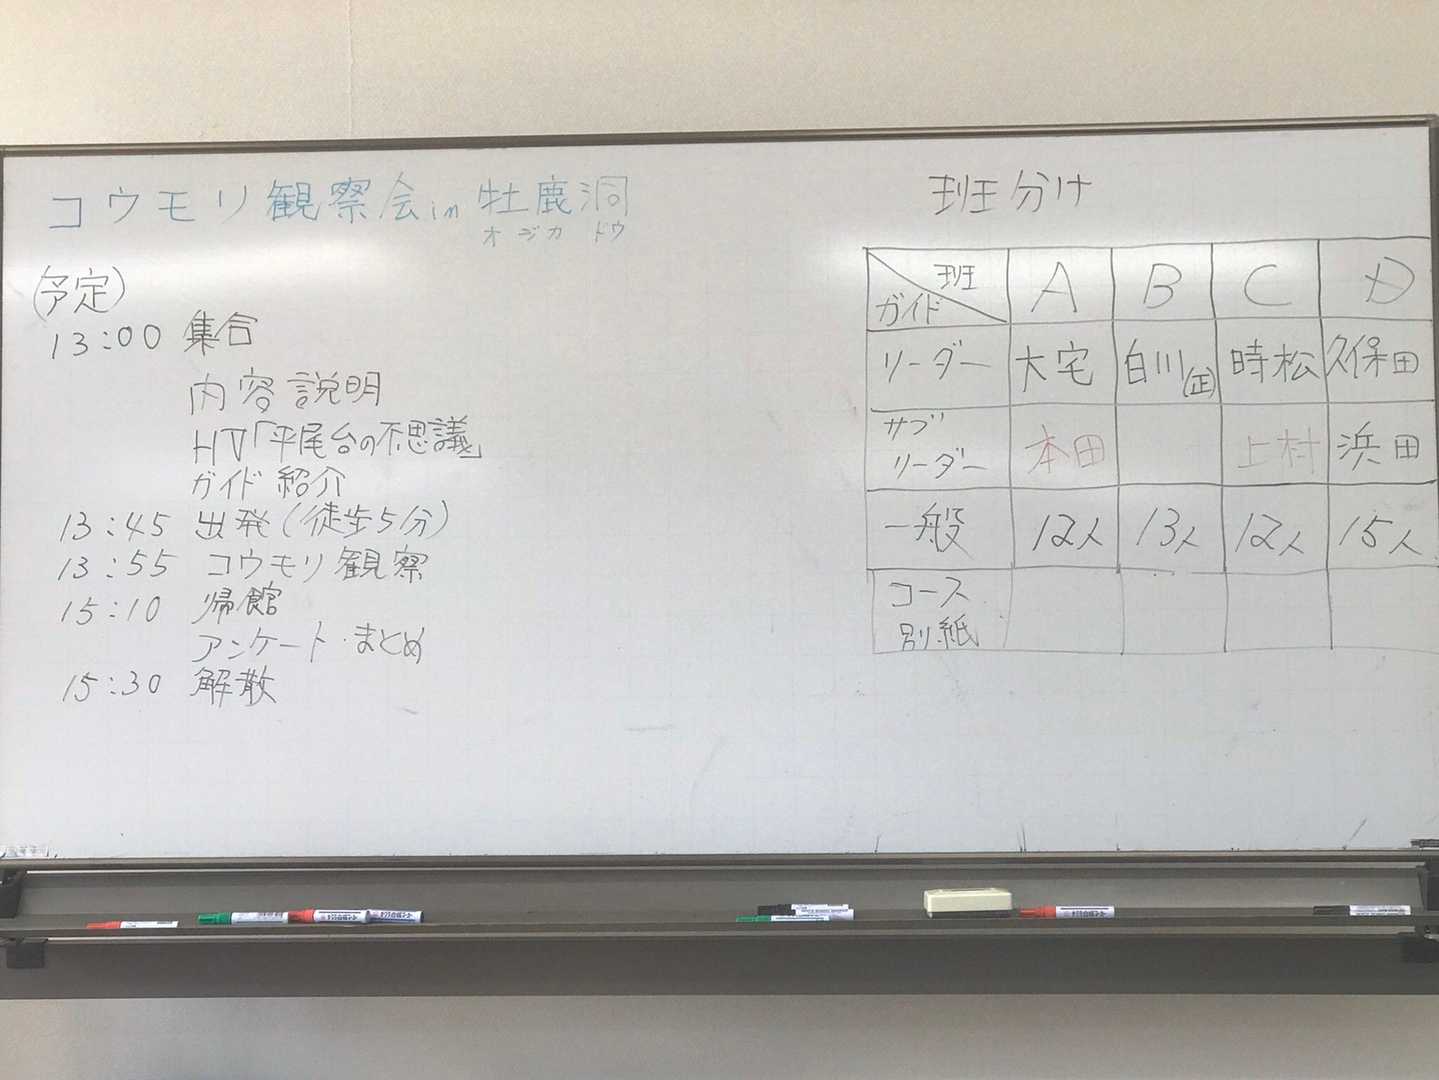 コウモリ観察会in牡鹿洞
オジカ ドウ
(予定)
13:00 集合
内容説明
HV「平尾台の不思議」
ガイド紹介
13:45 出発(徒歩5分)
13:55 コウモリ観察
15:10 帰館
アンケート・まとめ
15:30 解散
班分け
班 ガイド A B C D
リーダー 大宅 白川(正) 時松 久保田
サブリーダー 本田 上村 浜田
一般 12人 13人 12人 15人
コース
別紙